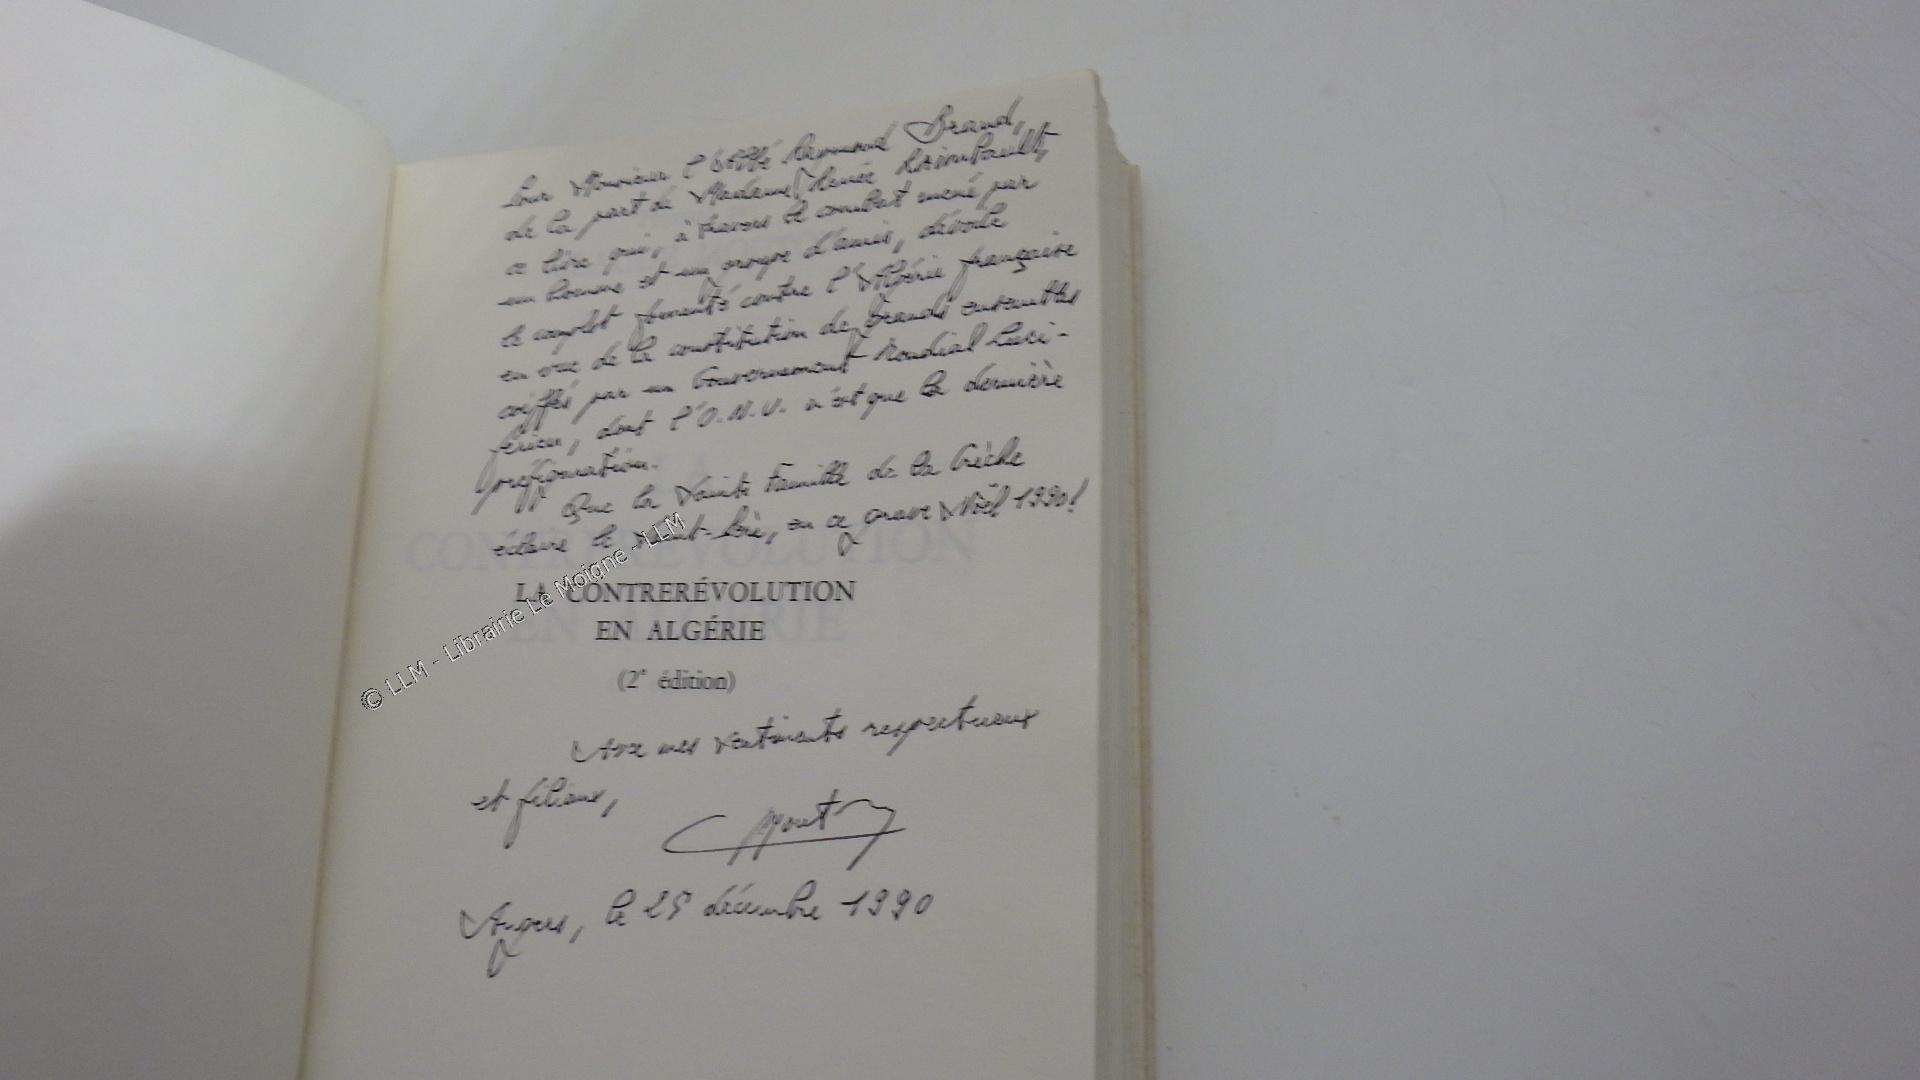 Pour Monsieur l'Abbé Raymond Brand,
de la part de Madame Renée Raimbault,
ce livre qui, à travers le combat mené par
un homme et un groupe d'amis, dévoile
le complot fomenté contre l'Algérie française
en vue de la constitution de grands ensembles
coiffés par un Gouvernement Mondial Luci-
férien, dont l'O.N.U. n'est que la dernière
préfiguration.
Que la Sainte Famille de la Crèche
éclaire le, en ce grave Noël 1990!
CONTRERÉVOLUTION
EN ALGÉRIE
LA CONTRERÉVOLUTION
EN ALGÉRIE
(2e édition)
Avec mes sentiments respectueux
et filiaux,
Angers, le 25 décembre 1990
© LLM - Librairie Le Moigne - LLM